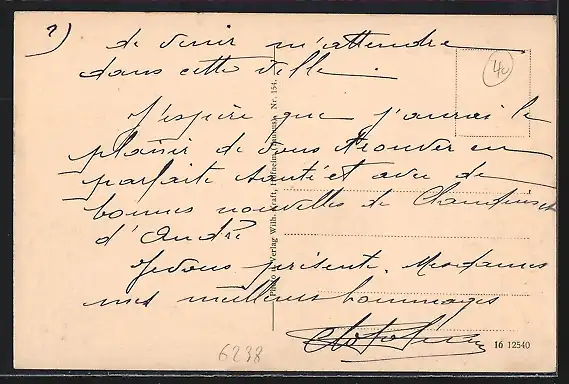 2)
de venir m'attendre
dans cette ville.
40
J'espère que j'aurai le
plaisir de vous trouver en
parfaite santé et avec de
bonnes nouvelles de
d'André
Je vous présente, Mesdames
mes meilleurs hommages
Photo u. Verlag Wilh. Kraft, Nr. 154.
16 12540
6238